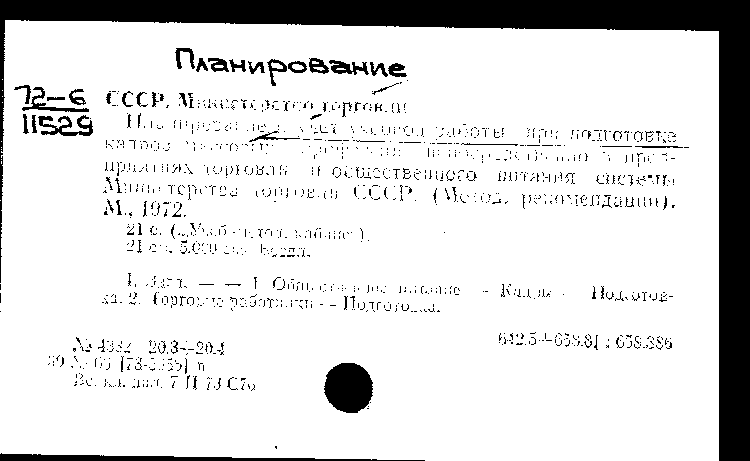 Планирование
72-6
11529
СССР. Министерство торговли
Планирование и учет учебной работы при подготовке
кадров массовых профессий непосредственно в пред-
приятиях торговли и общественного питания системы
Министерства торговли СССР. (Метод. рекомендации).
М., 1972.
21 с. (Учеб.-метод. кабинет).
21 см. 5.000 экз. Беспл.
1. Загл. — — 1. Общественное питание — Кадры — Подготов-
ка. 2. Торговые работники — Подготовка.
№ 4332 20.3—20.4
642.5+658.8] : 658.386
№ 66 [73-
Вс. кн. пал. 7 II 73 С7о